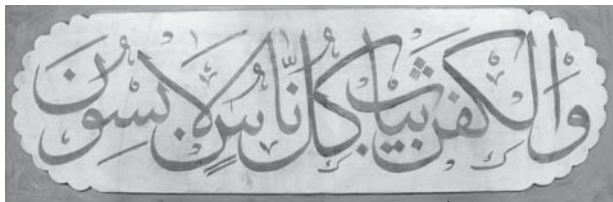 وَالكفن ثياب كل نّاسٍ لابسون